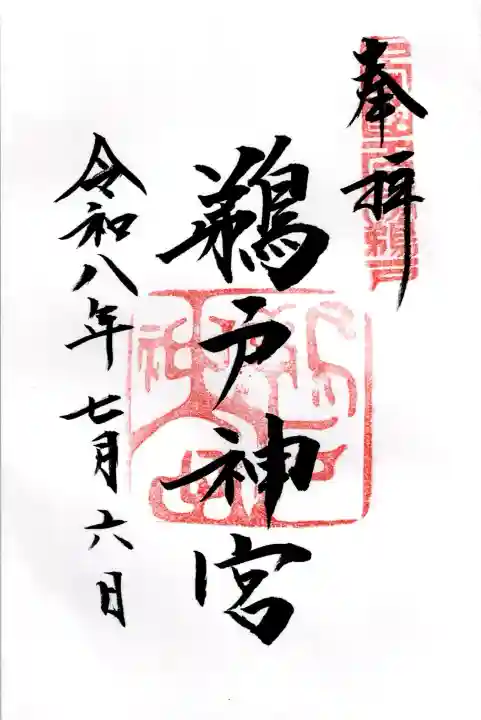 奉拝
鵜戸神宮
令和八年七月六日